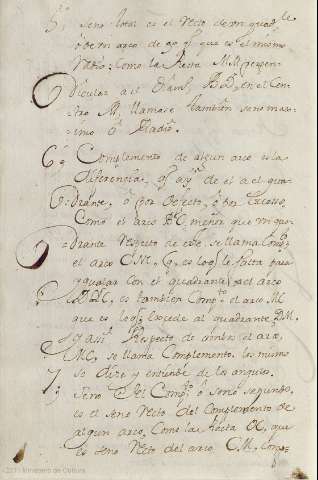 5.º Seno total es el recto de un quadrante
ò de un arco de 90 g. que es el mismo
radio: Como la recta M. perpen-
dicular a el diam.º B.D. en el cen-
tro llamase tambien seno max-
imo ò Radio.
6.º Complemento de algun arco es la
diferencia, q. ay de el a el qua-
drante, ò por defecto, ò por excesso,
Como el arco menor que un qua-
drante respecto de este, se llama Comp.
el arco C.M. q. es lo q. le falta para
ygualar con el quadrante; a el arco
es tambien Comp.to el arco M.C.
que es lo q. excede al quadrante D.M.
y assi respecto de ambos el arco
M.C. se llama Complemento. lo mismo
se dize y entiende de los angulos.
7.º Seno del Comp.to ò seno segundo,
es el seno recto del Complemento de
algun arco, Como la recta que
es seno recto del arco C.M. Comp.
2011 Ministerio de Cultura